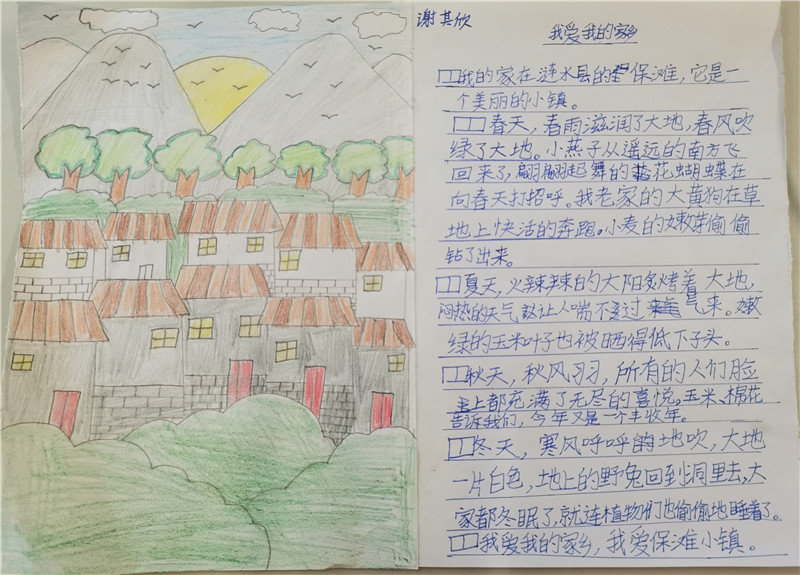 谢其欣
我爱我的家乡
我的家在涟水县的保滩,它是一
个美丽的小镇。
春天,春雨滋润了大地,春风吹
绿了大地。小燕子从遥远的南方飞
回来了,翩翩起舞的花蝴蝶在
向春天打招呼。我老家的大黄狗在草
地上快活的奔跑。小麦的嫩芽偷偷
钻了出来。
夏天,火辣辣的大阳炙烤着大地,
闷热的天气让人喘不过气来。嫩
绿的玉米叶子也被晒得低下了头。
秋天,秋风习习,所有的人们脸
上都充满了无尽的喜悦。玉米、棉花
告诉我们,今年又是一个丰收年。
冬天,寒风呼呼的地吹,大地
一片白色,地上的野兔回到洞里去,大
家都冬眠了,就连植物们也偷偷地睡着了。
我爱我的家乡,我爱保滩小镇。